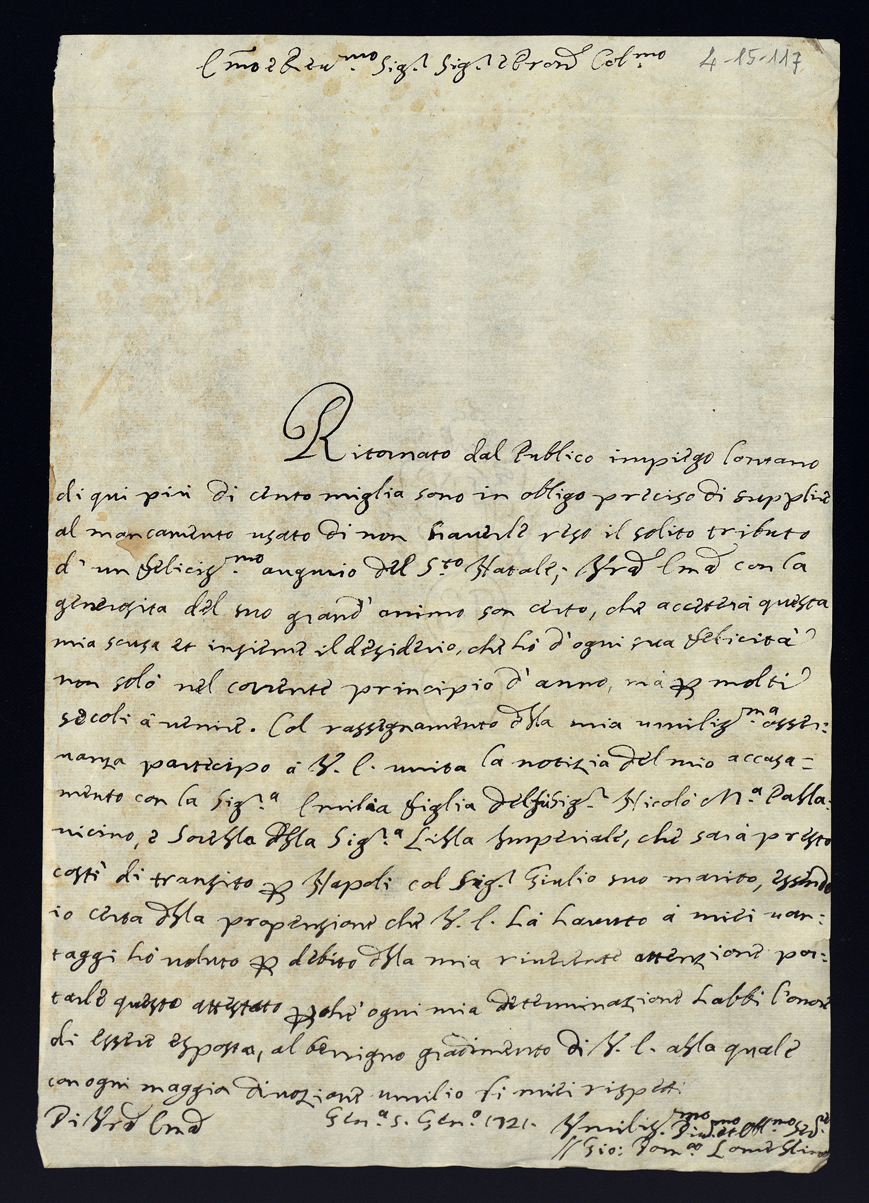 Em̃o e Reu.mo Sig.r Sig.r e Pron̄ Col.mo 4-15-117
Ritornato dal Publico impiego lontano
di qui più di cento miglia sono in obligo preciso di supplire
al mancamento usato di non hauerle reso il solito tributo
d'un feliciss.mo augurio del S.to Natale; Vrã Emã con la
generosita del suo grand'animo son certo, che accetterà questa
mia scusa et insieme il desiderio, che hò d'ogni sua felicità
non solo nel corrente principio d'anno, mà ꝑ molti
secoli à uenire. Col rassegnamento della mia umiliss.ma osser:
uanza partecipo à V. E. unita la notizia del mio accasa=
mento con la Sig.ra Emilia figlia del fù Sig.r Nicolò M.a Palla:
uicino, e Sorella della Sig.ra Lilla Imperiale, che sarà presto
costì di transito ꝑ Napoli col Sig.r Giulio suo marito, essendo
io certo della propensione che V. E. hà hauuto à miei uan:
taggi hò uoluto ꝑ debito della mia riuerente attenzione por:
tarle questo attestato ꝑche ogni mia determinazione habbi l'onore
di essere esposta, al benigno gradimento di V. E. alla quale
con ogni maggior diuozione umilio li miei rispetti
Di Vrã Emã Gen.a 5. Gen.o 1721. Vmiliss.mo Diu.mo et Obl.mo Ser.e
Gio: Dom.co Lomellino